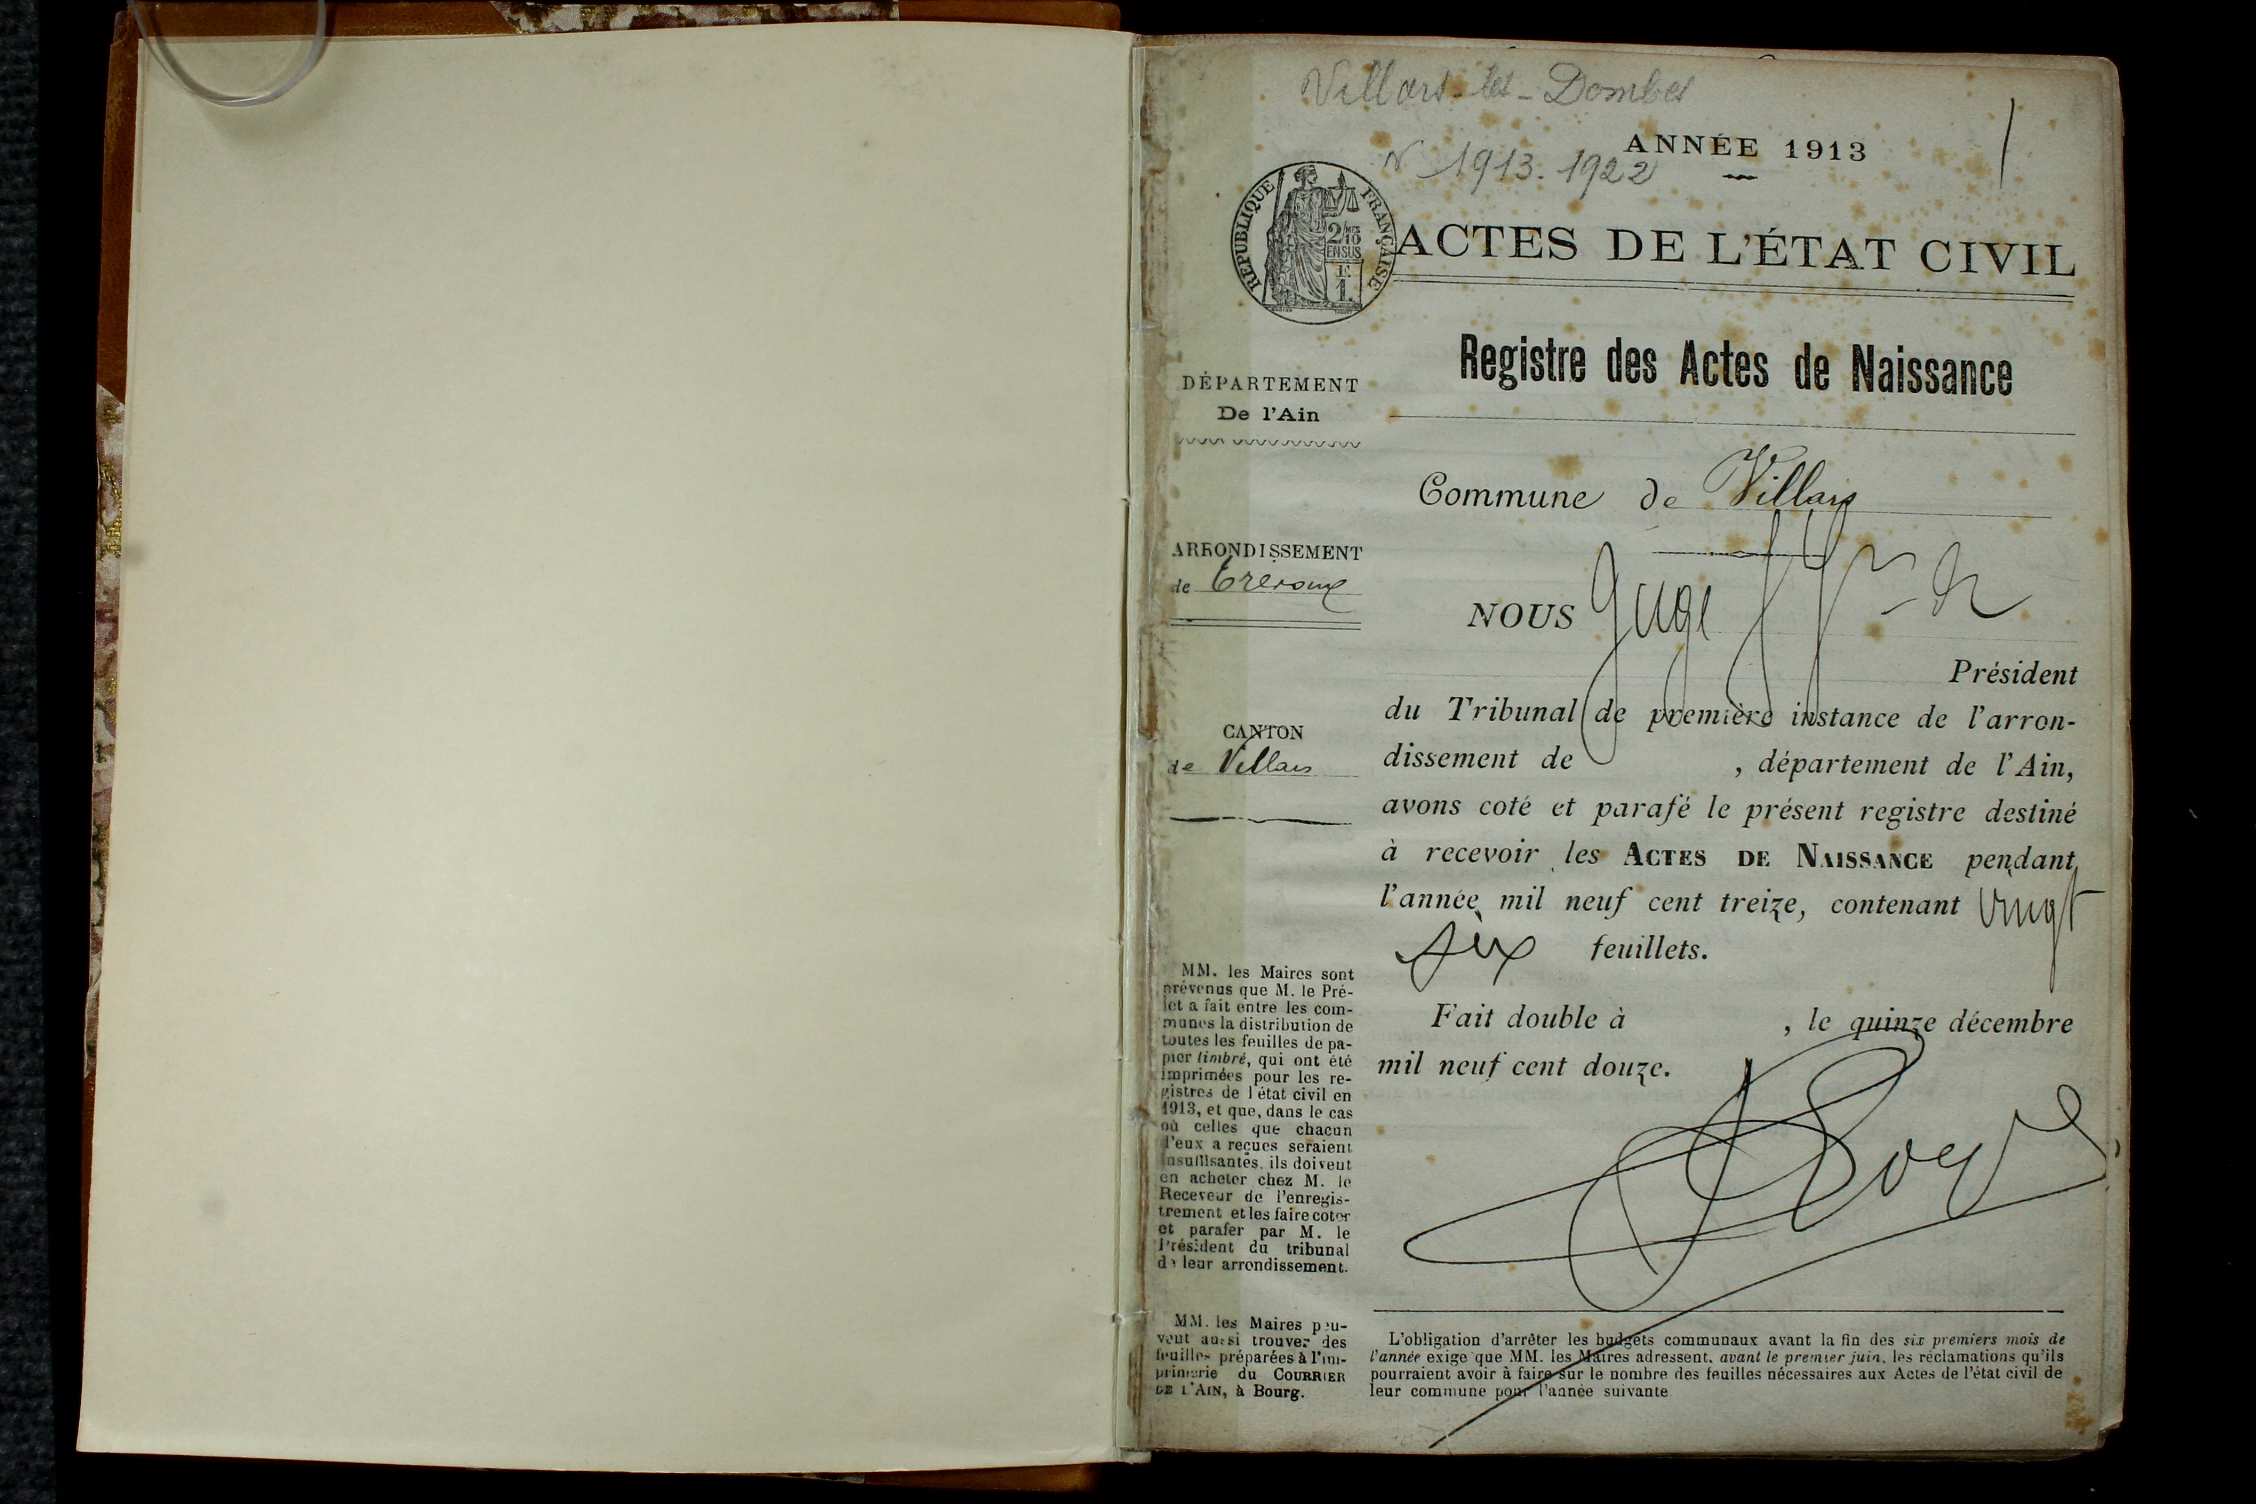 Villars-les-Dombes
ANNÉE 1913
N 1913-1922
1
RÉPUBLIQUE FRANÇAISE
2/10
EN SUS
1F.
ACTES DE L'ÉTAT CIVIL
Registre des Actes de Naissance
DÉPARTEMENT
De l'Ain
Commune de Villars
ARRONDISSEMENT
de Trévoux
NOUS Juge
Président
du Tribunal de première instance de l'arron-
dissement de , département de l'Ain,
avons coté et parafé le présent registre destiné
à recevoir les ACTES DE NAISSANCE pendant
l'année mil neuf cent treize, contenant vingt
six feuillets.
Fait double à , le quinze décembre
mil neuf cent douze.
CANTON
de Villars
MM. les Maires sont
prévenus que M. le Pré-
fet a fait entre les com-
munes la distribution de
toutes les feuilles de pa-
pier timbré, qui ont été
imprimées pour les re-
gistres de l'état civil en
1913, et que, dans le cas
où celles que chacun
d'eux a reçues seraient
insuffisantes, ils doivent
en acheter chez M. le
Receveur de l'enregis-
trement et les faire coter
et parafer par M. le
Président du tribunal
de leur arrondissement.
MM. les Maires peu-
vent aussi trouver des
feuilles préparées à l'im-
primerie du COURRIER
DE L'AIN, à Bourg.
L'obligation d'arrêter les budgets communaux avant la fin des six premiers mois de
l'année exige que MM. les Maires adressent, avant le premier juin, les réclamations qu'ils
pourraient avoir à faire sur le nombre des feuilles nécessaires aux Actes de l'état civil de
leur commune pour l'année suivante